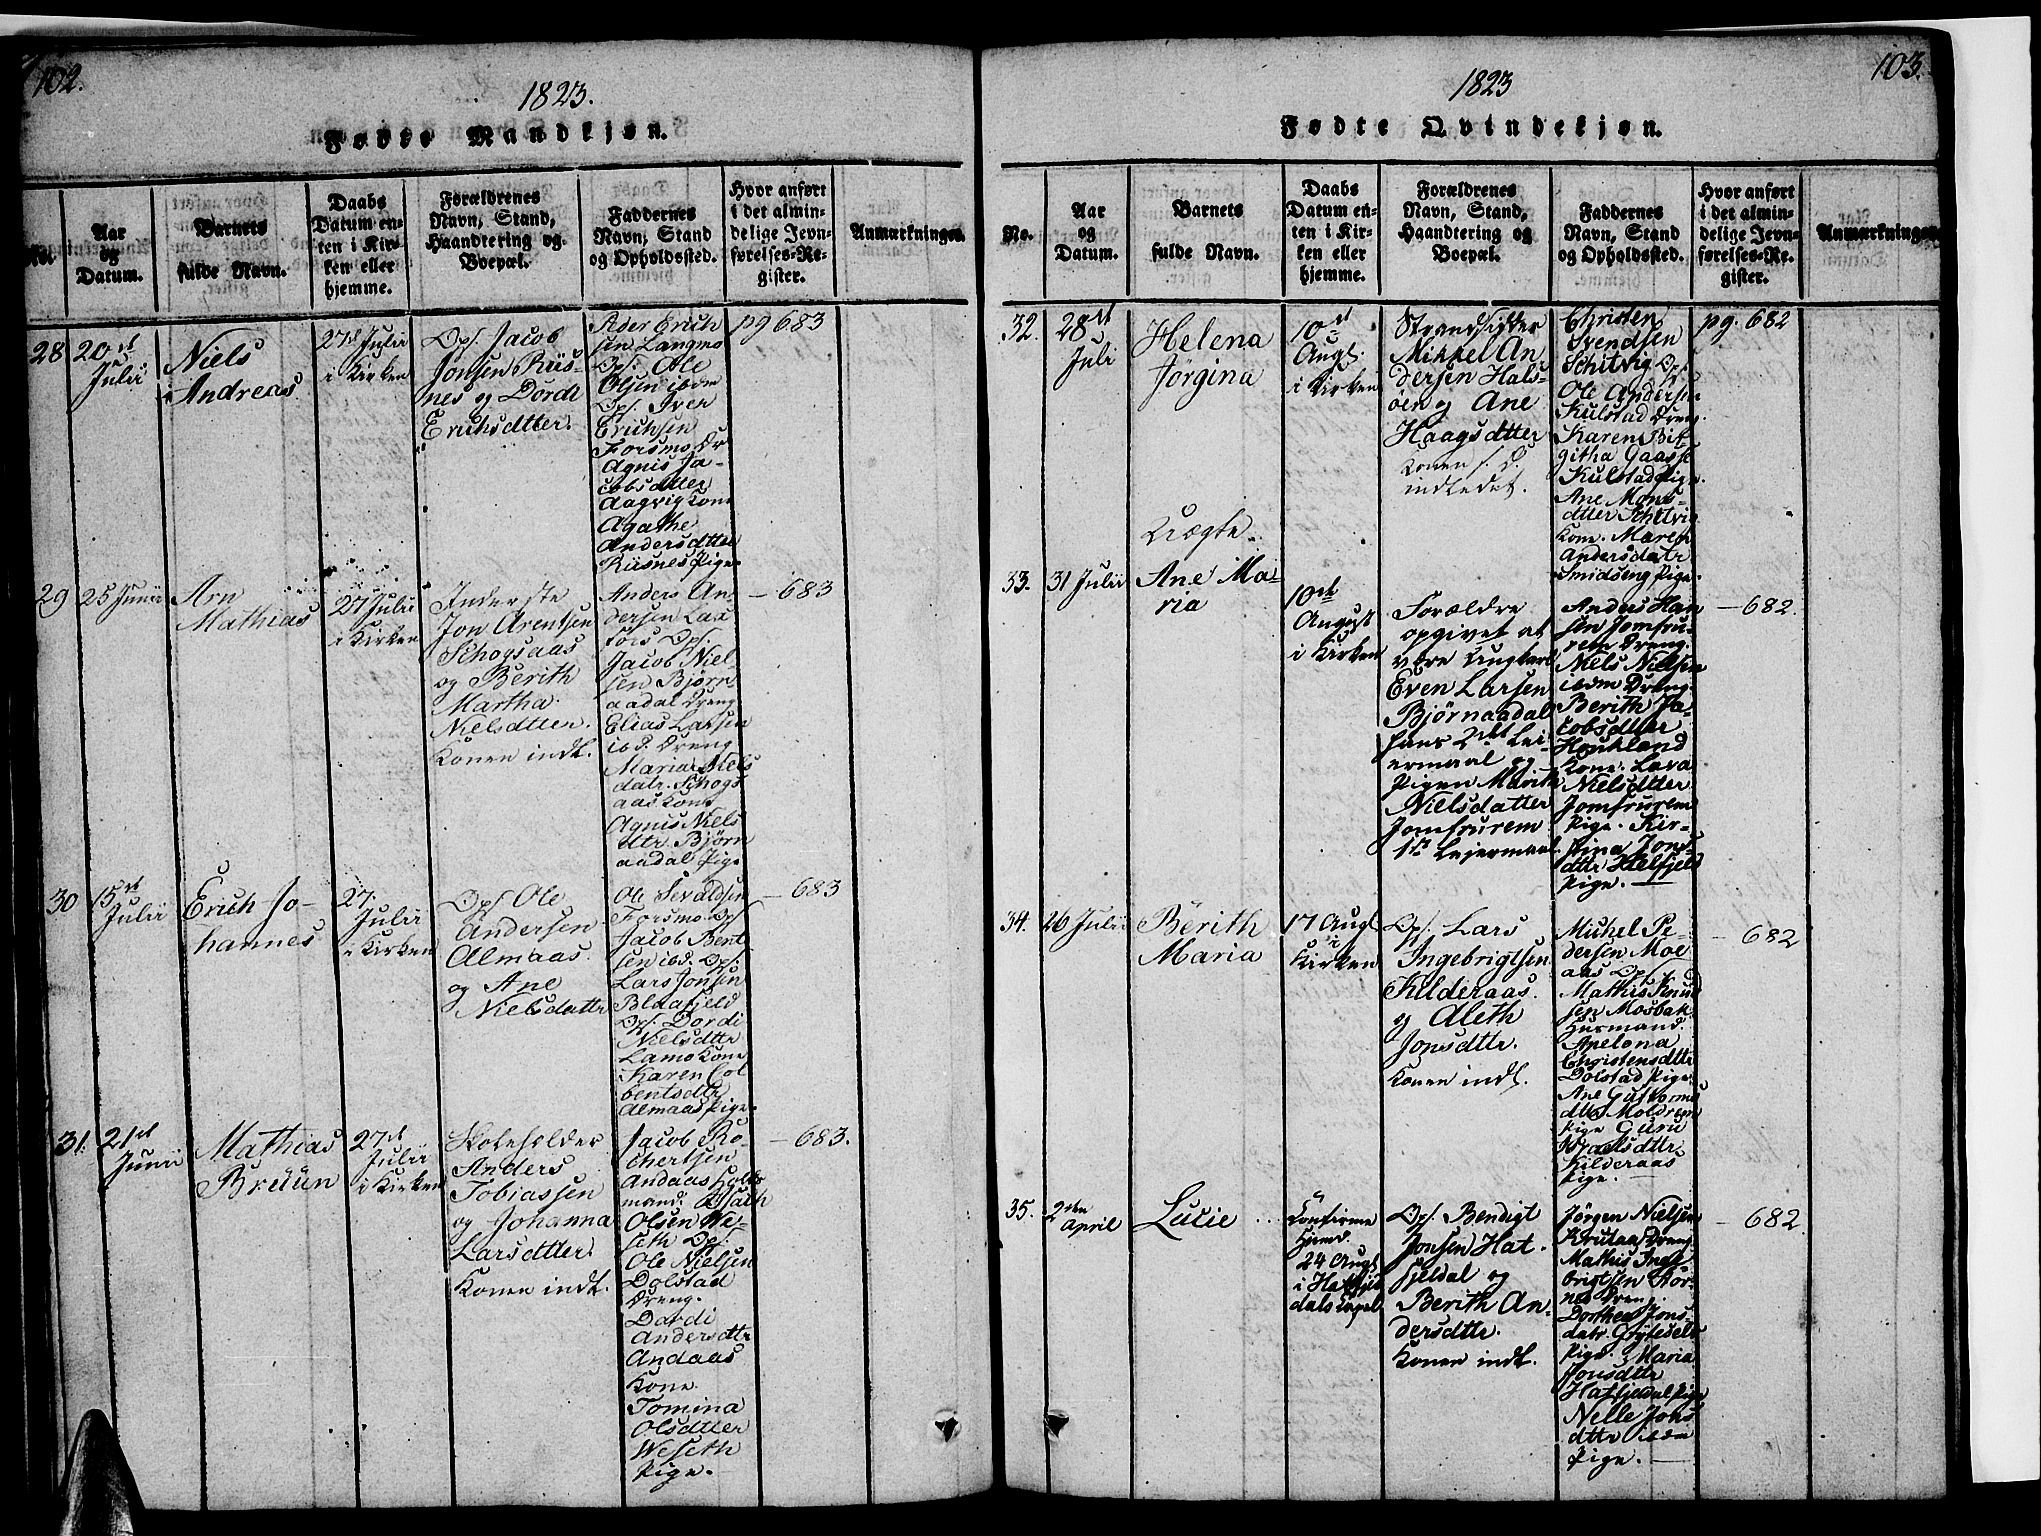 102.
1823.
Fødte Mandkjøn.
No.
Aar
og
Datum.
Barnets
fulde Navn.
Daabs
Datum en-
ten i Kir-
ken eller
hjemme.
Forældrenes
Navn, Stand,
Haandtering og
Boepæl.
Faddernes
Navn, Stand
og Opholdssted.
Hvor anført
i det almin-
delige Jevn-
førelses-Re-
gister.
Anmærkninger.
28
20de
Julii
Niels
Andreas
27de Julii
i Kirken
Ops. Jacob
Jonsen Rüs-
nes og Dordi
Erichsdtter.
Peder Erich
sen Langmo
Ops. Ole
Olsen ibdm
Ops. Iver
Erichsen
Forsmo Dr
Agnis Ja-
cobsdtter
Aagvig Kone
Agathe
Andersdtter
Rüsnes Pige
pg 683
29
25 Junii
Arn
Mathias
27 Julii
i Kirken
Inderste
Jon Arentsen
Schogsaas
og Berith
Martha
Nielsdtter.
Konen indl.
Anders An
dersen Lax
fors Ops.
Jacob Niel-
sen Bjørn-
aadal Dreng
Elias Larsen
ibd. Dreng
Maria Niels
datr. Schogs
aas Kone
Agnis Niels
dtr. Bjørn
aadal Pige
— 683
30
15de
Julii
Erich Jo-
hannes
27.
Julii
i Kirken
Ops Ole
Andersen
Almaas
og Ane
Nielsdattr
Ole Sevaldsen
Forsmo Ops
Jacob Bent
sen ibd. Ops.
Lars Jonsen
Blaafjeld
Ops. Dordi
Nielsdttr
Lamo Kone
Karen Col
bentsdtr
Almaas Pige.
— 683
31.
21de
Junii
Mathias
Brüün
27de
Julii
i Kirken
Skoleholder
Anders
Tobiassen
og Johanna
Larsdtter
Konen indl.
Jacob Ro-
chertsen
Andaas Holds
mand.
Olsen We-
seth Ops.
Ole Nielsen
Dolstad
Dreng.
Dordi
Andersdtr
Andaas
Kone
Tomina
Olsdtter
Weseth
Pige.
— 683.
103.
1823
Fødte Qvindekjøn.
No.
Aar
og
Datum.
Barnets
fulde Navn.
Daabs
Datum en-
ten i Kir-
ken eller
hjemme.
Forældrenes
Navn, Stand,
Haandtering og
Boepæl.
Faddernes
Navn, Stand
og Opholdssted.
Hvor anført
i det almin-
delige Jevn-
førelses-Re-
gister.
Anmærkninger.
32.
28de
Juli
Helena
Jørgina
10de
Augl.
i Kirken
Strandsidder
Mikkel An
dersen Hals-
øen og Ane
Haagsdtter
Konen s. D.
indledet.
Christen
Svendsen
Schitvig Ops.
Ole Andersen
Kulstad Dreng.
Karen Bir
githa Gaasse
Kulstad Pige.
Ane Mons-
dtter Schitvig
Kone. Maren
Andersdatr
Smidseng Pige.
pg. 682
Uægte.
33.
31 Julii
Ane Ma-
ria
10de
August
i Kirken
Forældre
opgivet at
være Ungkarl
Even Larsen
Bjørnaadal
hans 2det Lei-
ermaal og
Pigen Marith
Nielsdatter
Jomfrurem
1ste Lejermaal.
Anders Han
sen Jomfru-
rem Dreng.
Niels Nielsen
ibdm Dreng.
Berith Ja-
cobsdtter
Houkland
Kone. Lava
Nielsdtter
Jomfrurem
Pige. Kir-
stina Jons
dttr Kielfjeld
Pige. —
— 682.
34.
26 Julii
Berith
Maria
17 Augl
i
Kirken
Ops. Lars
Ingebrigtsen
Kilderaas.
og Aleth
Jonsdttr.
Konen indl.
Michel Pe-
dersen Moe
aas Ops
Mathis Knud
sen Mosbak
Huusmand.
Apelona
Christensdttr
Dolstad Pige.
Ane Guttorms
dtr Moldrem
Pige Guru
Kilderaas
Pige. —
— 682
35.
2den
April
Lucie ...
Confirme
hjemd.
24 Augl
i Hatfjel
dals Capel
Ops. Bendigt
Jonsen Hat-
fjeldal og
Berith An-
dersdttr.
Konen indl.
Jørgen Nielsen
Krutaa Dreng.
Mathis Inge
brigtsen Rør-
nes Dreng
Dorthea Jons-
datr. Gryteselv
Pige. Maria
Jonsdttr
Hatfjeldal Pige
Nelle Jons
dttr ibdm
Pige. —
— 682